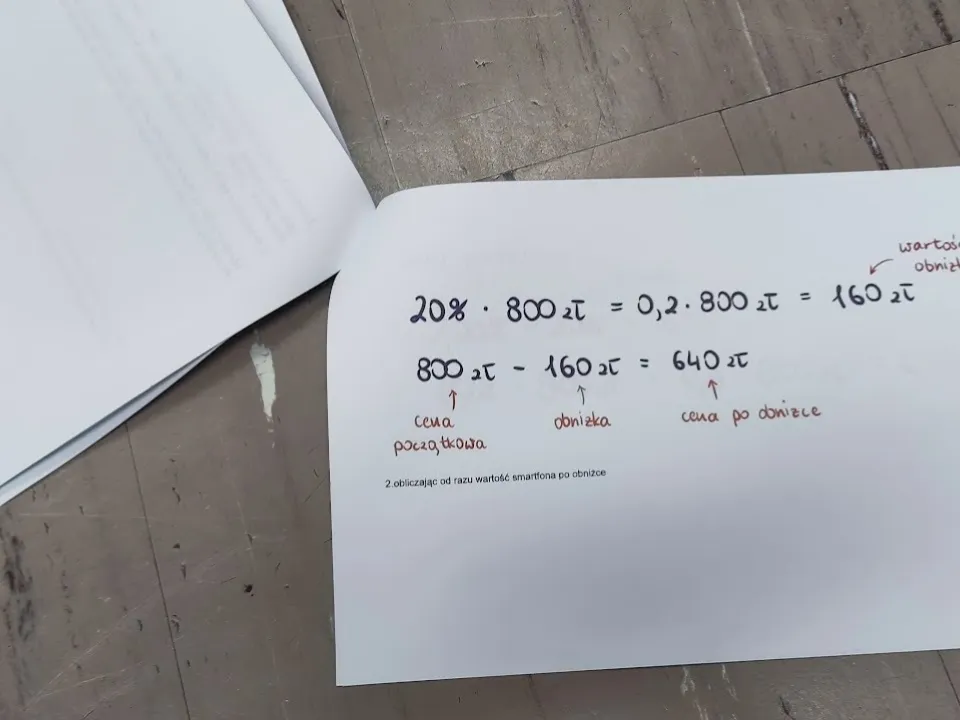 wartość
20% · 800 zł = 0,2 · 800 zł = 160 zł
800 zł - 160 zł = 640 zł
cena początkowa
obniżka
cena po obniżce
2.obliczając od razu wartość smartfona po obniżce